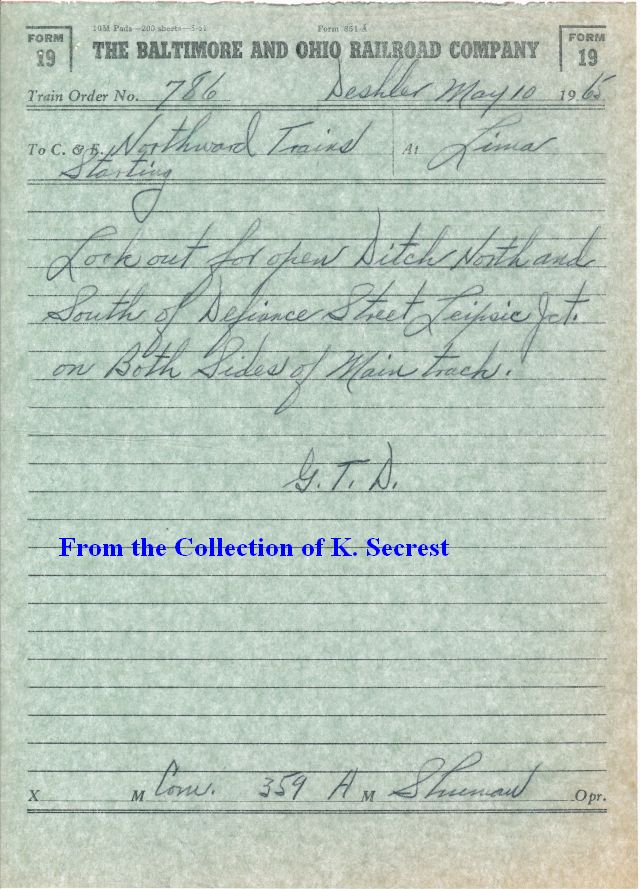 10M Pads—200 sheets—5-61 Form 851-A
FORM 19 THE BALTIMORE AND OHIO RAILROAD COMPANY FORM 19
Train Order No. 786 Deshler May 10 1965
To C. & E. Northward Trains At Lima
Starting
Look out for open Ditch North and
South of Defiance Street Leipsic Jct.
on Both Sides of Main track.
G. T. D.
From the Collection of K. Secrest
X M Com. 359 A M Shuman Opr.